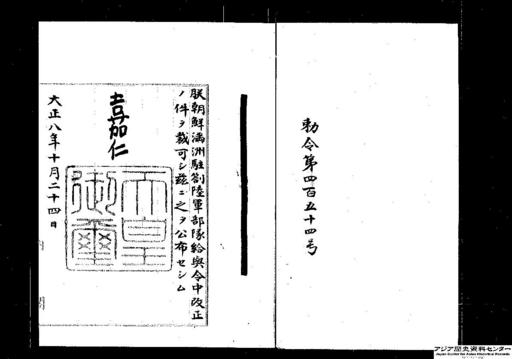 勅令第四百五十四号
朕朝鮮満洲駐劄陸軍部隊給与令中改正
ノ件ヲ裁可シ茲ニ之ヲ公布セシム
嘉仁
天皇御璽
大正八年十月二十四日
アジア歴史資料センター
Japan Center for Asian Historical Records